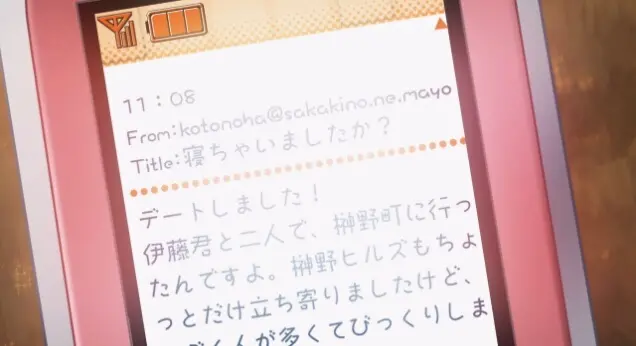 11：08
From:kotonoha@sakakino.ne.mayo
Title:寝ちゃいましたか？
デートしました！
伊藤君と二人で、榊野町に行っ
たんですよ。榊野ヒルズもちょ
っとだけ立ち寄りましたけど、
くんが多くてびっくりしま